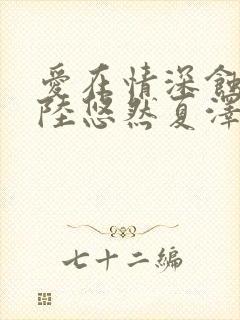 愛在情深蝕
陸悠然夏澤
七十二編